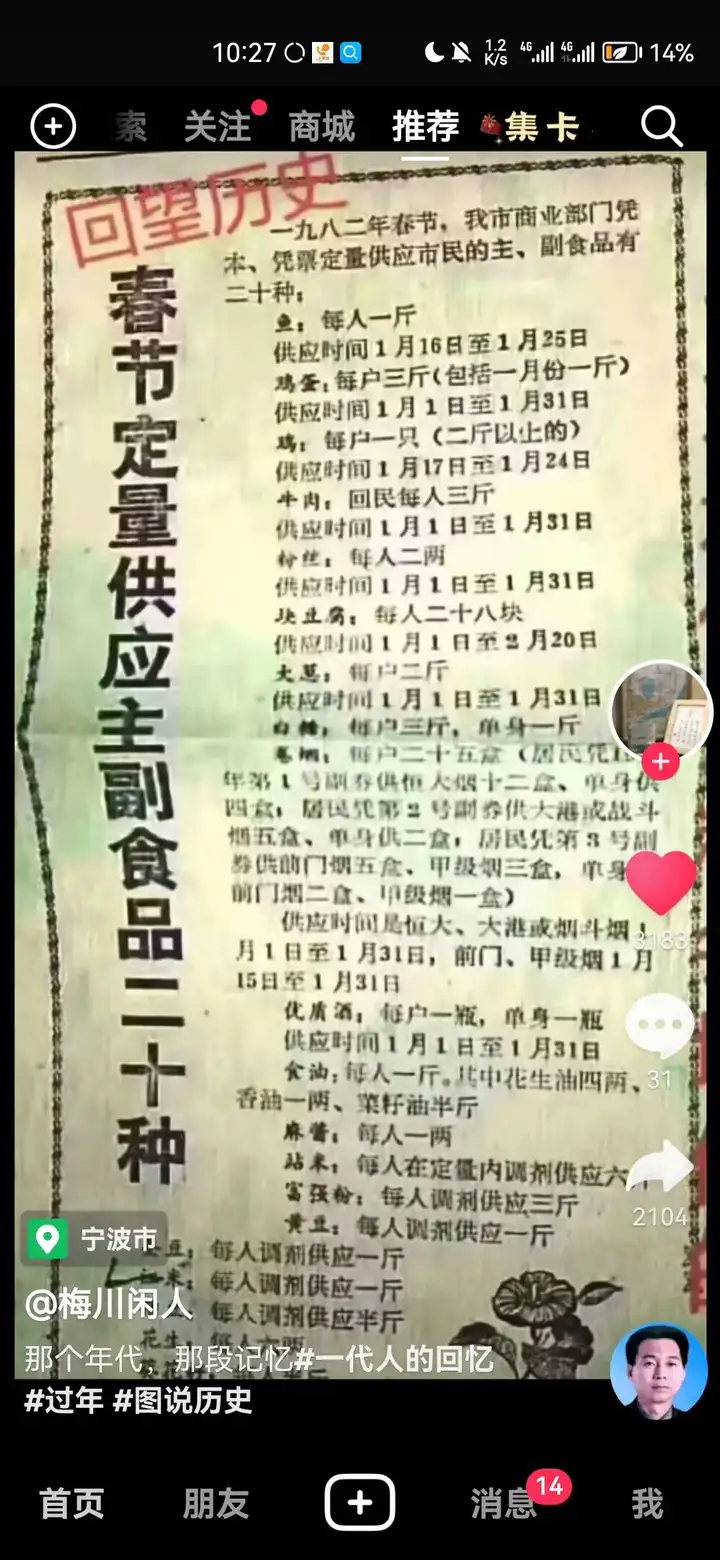 10:27
1.2
K/s
4G
4G
14%
索
关注
商城
推荐
集卡
回望历史
春节定量供应主副食品二十种
一九八二年春节，我市商业部门凭
本、凭票定量供应市民的主、副食品有
二十种：
鱼：每人一斤
供应时间1月16日至1月25日
鸡蛋：每户三斤（包括一月份一斤）
供应时间1月1日至1月31日
鸡：每户一只（二斤以上的）
供应时间1月17日至1月24日
牛肉：回民每人三斤
供应时间1月1日至1月31日
粉丝：每人二两
供应时间1月1日至1月31日
块豆腐：每人二十八块
供应时间1月1日至2月20日
大葱：每户二斤
供应时间1月1日至1月31日
白糖：每户三斤，单身一斤
卷烟：每户二十五盒（居民凭
年第1号副券供恒大烟十二盒、单身供
四盒；居民凭第2号副券供大港或战斗
烟五盒、单身供二盒；居民凭第3号副
券供前门烟五盒、甲级烟三盒，单身
前门烟二盒、甲级烟一盒）
供应时间是恒大、大港或烟斗烟1
月1日至1月31日，前门、甲级烟1月
15日至1月31日
优质酒：每户一瓶，单身一瓶
供应时间1月1日至1月31日
食油：每人一斤。其中花生油四两、
香油一两、菜籽油半斤
麻酱：每人一两
站米：每人在定量内调剂供应六
富强粉：每人调剂供应三斤
黄豆：每人调剂供应一斤
豆：每人调剂供应一斤
江米：每人调剂供应一斤
每人调剂供应半斤
花生：每人六两
3183
31
2104
宁波市
@梅川闲人
那个年代，那段记忆#一代人的回忆
#过年 #图说历史
首页
朋友
消息
14
我